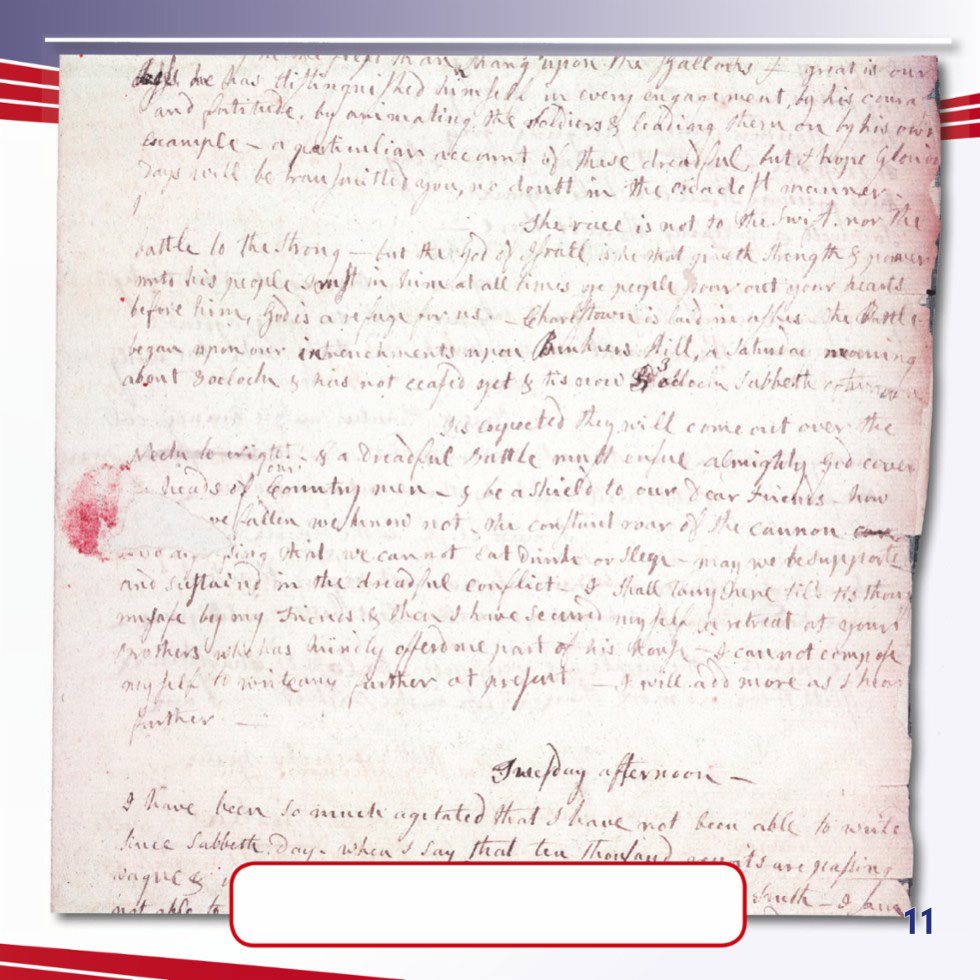 than hang upon the Gallows — great is our
Loss. he has distinguished himself in every engagement, by his coura
and fortitude, by animating the soldiers & leading them on by his own
example — a particuliar account of these dreadful, but I hope Glorious
Days will be transmitted you, no doubt in the exactest manner —
The race is not to the swift, nor the
battle to the strong — but the God of Israel is he that giveth strength & power
unto his people trust in him at all times ye people pour out your hearts
before him, God is a refuge for us — Charlstown is laid in ashes the Battle
began upon our intrenchments upon Bunkers Hill, a Saturday morning
about 3 oclock & has not ceased yet & tis now 3 oclock Sabbeth afternoon
Tis expected they will come out over the
Neck to night & a Dreadful Battle must ensue almighty God cover
heads of our Country men — & be a shield to our Dear Friends. how
ve fallen we know not — the constant roar of the cannon
sing that we cannot Eat Drink or sleep — may we be supporte
and sustaind in the dreadful conflict — I shall tarry here till tis thou
unsafe by my Friends & then I have secured myself a retreat at your
Brothers who has kindly offerd me part of his House — I cannot compose
myself to write any further at present — I will add more as I hear
further —
Tuesday afternoon —
I have been so much agitated that I have not been able to write
since Sabbeth day — when I say that ten thousand reports are passing
vague &
not able to
Truth — I am
11